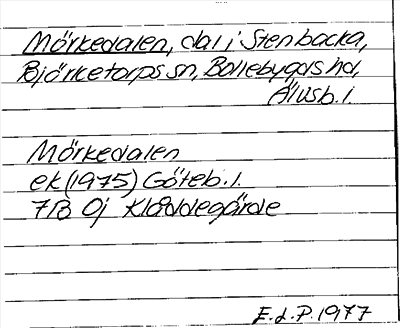 Mörkedalen, dal i Stenbacka,
Björketorps sn, Bollebygds hd,
Älvsb. l.
Mörkedalen
ek (1975) Göteb. l.
7B 0j Kläddegärde
E.d.P. 1977